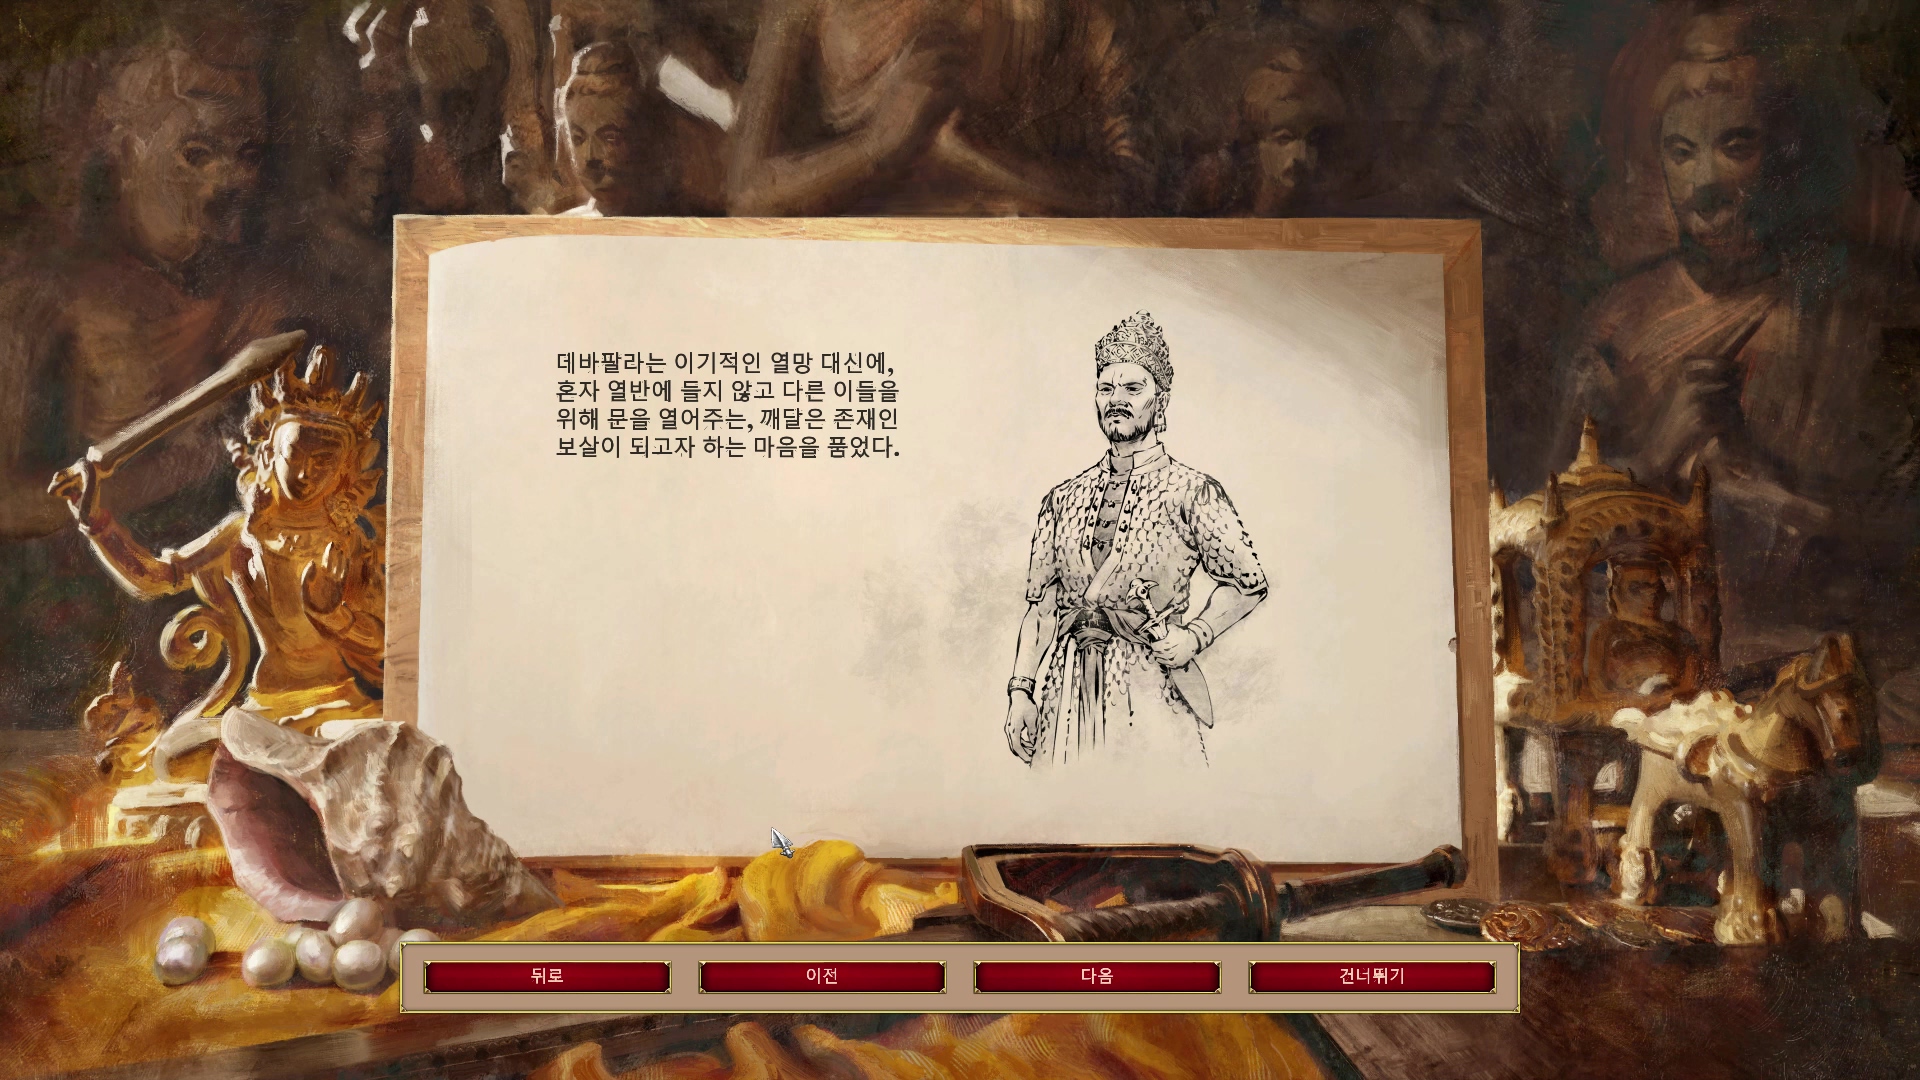 데바팔라는 이기적인 열망 대신에,
혼자 열반에 들지 않고 다른 이들을
위해 문을 열어주는, 깨달은 존재인
보살이 되고자 하는 마음을 품었다.
뒤로
이전
다음
건너뛰기